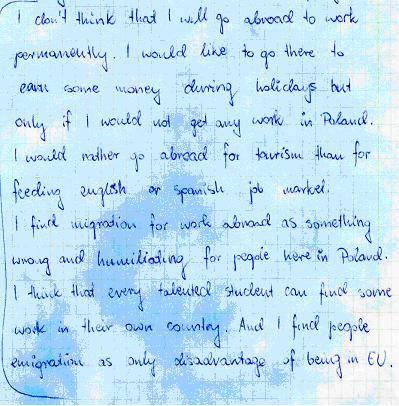 I don't think that I will go abroad to work
permanently. I would like to go there to
earn some money during holidays but
only if I would not get any work in Poland.
I would rather go abroad for tourism than for
feeding english or spanish job market.
I find migration for work abroad as something
wrong and humiliating for people here in Poland.
I think that every talented student can find some
work in their own country. And I find people
emigration as only disadvantage of being in EU.